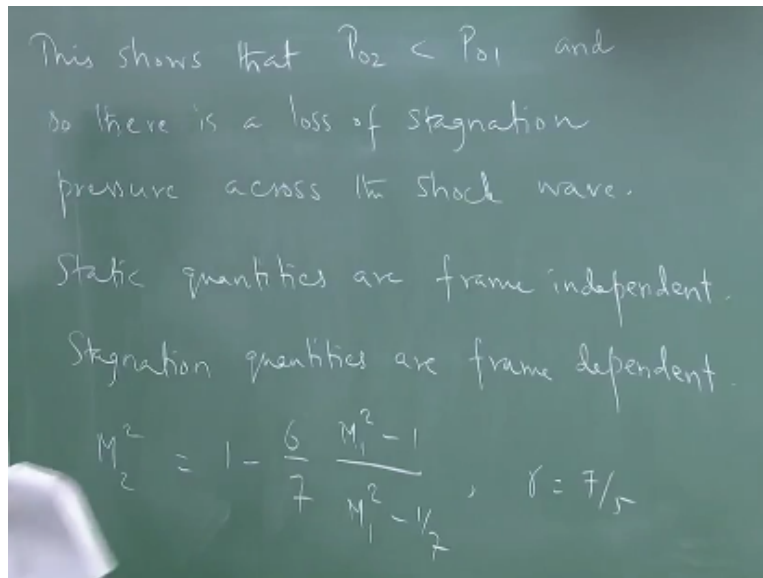 This shows that P₀₂ < P₀₁ and
so there is a loss of stagnation
pressure across the shock wave.
Static quantities are frame independent.
Stagnation quantities are frame dependent.
M₂² = 1 - 6/7 (M₁² - 1)/(M₁² - 1/7), γ = 7/5